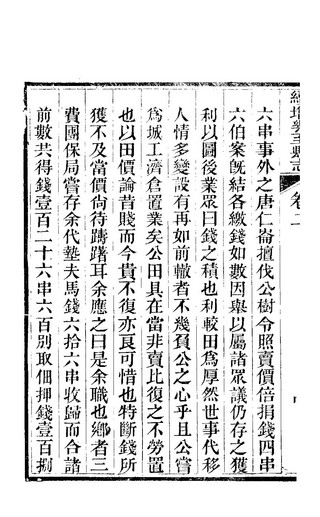 六串事外之唐仁崙擅伐公樹令照賣價倍捐錢四串
六伯案旣結各繳錢如數因舉以屬諸眾議仍存之獲
利以圖後業眾曰錢之積也利較田爲厚然世事代移
人情多變設有再如前轍者不幾負公之心乎且公嘗
爲城工濟倉置業矣公田具在當非賣比復之不勞置
也以田價論昔賤而今貴不復亦良可惜也特斷錢所
獲不及當價尚待躊躇耳余應之曰是余職也鄉者三
費團保局嘗存余代墊夫馬錢六拾六串收歸而合諸
前數共得錢壹百二十六串六百别取佃押錢壹百捌
卷二